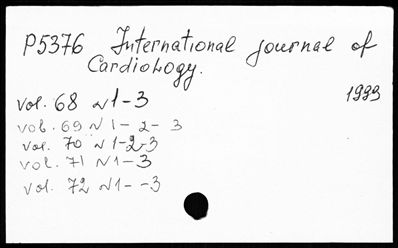 P5376 International journal of
Cardiology.
1999
vol. 68 N1-3
vol. 69 N 1- 2- 3
vol. 70 N1-2-3
vol. 71 N1-3
vol. 72 N1--3